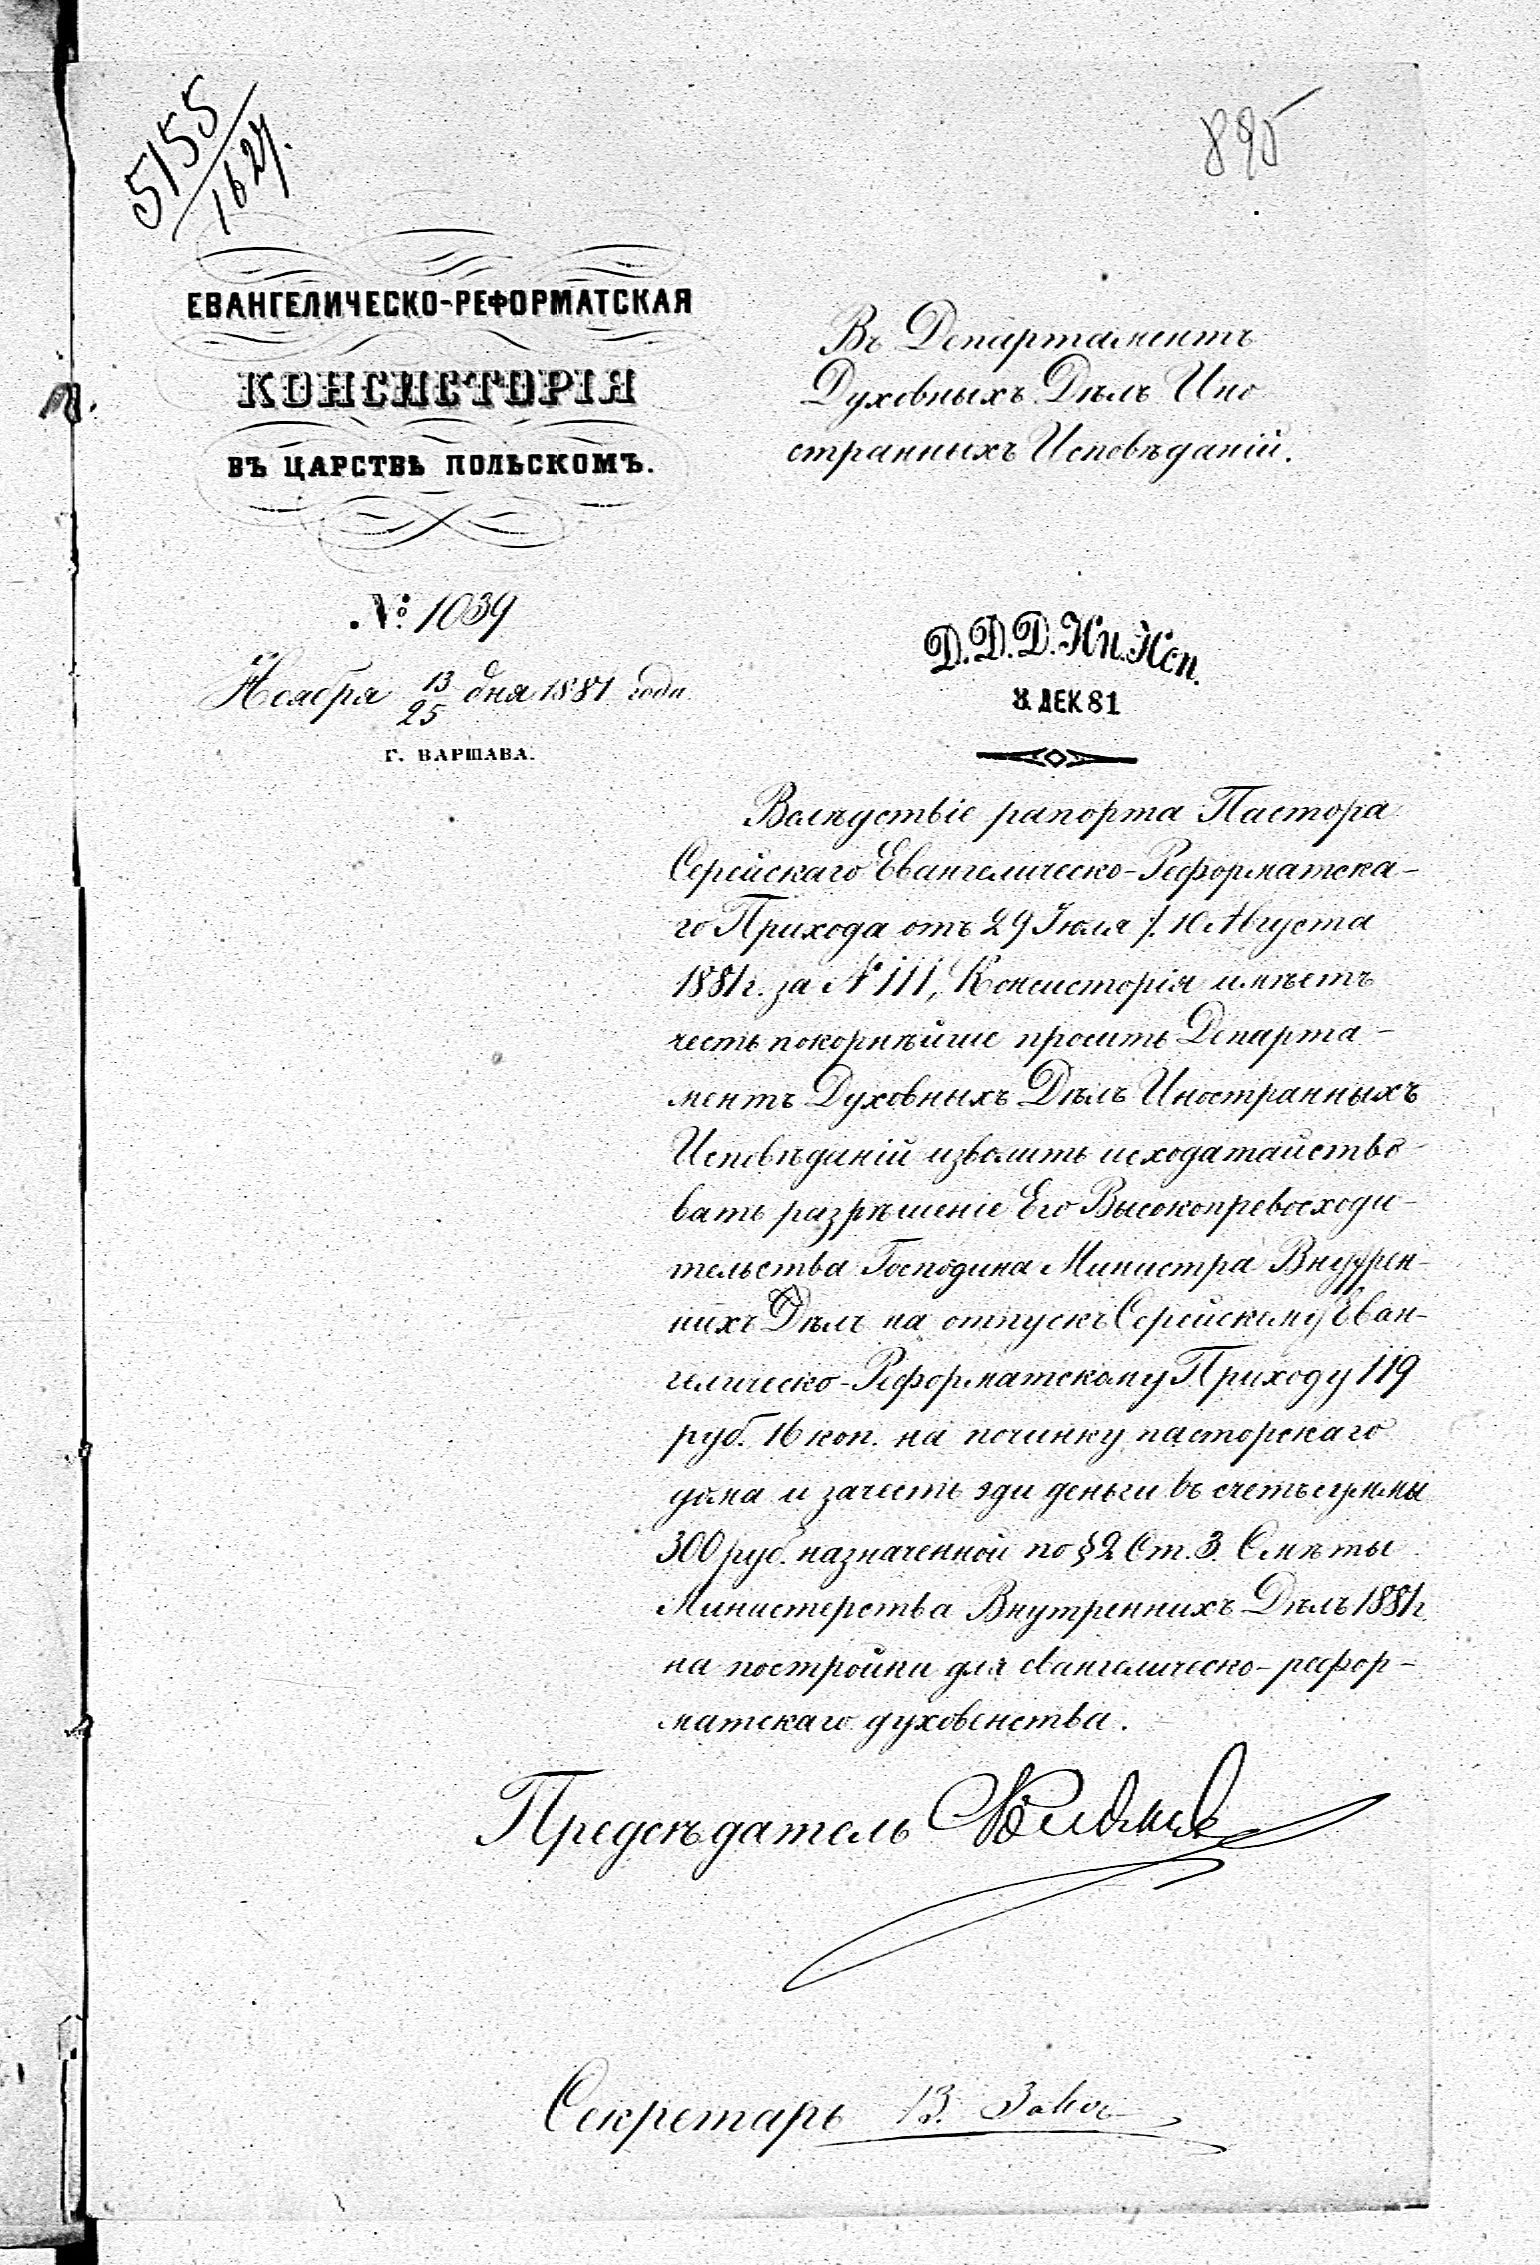 5155
1627.
895
ЕВАНГЕЛИЧЕСКО-РЕФОРМАТСКАЯ
КОНСИСТОРІЯ
ВЪ ЦАРСТВѢ ПОЛЬСКОМЪ.
№ 1039
Ноября 13/25 дня 1881 года
Г. ВАРШАВА.
Въ Департаментъ
Духовныхъ Дѣлъ Ино
странныхъ Исповѣданій.
Д.Д.Д.Ин.Исп.
8 ДЕК 81
Вслѣдствіе рапорта Пастора
Серейскаго Евангелическо-Реформатска-
го Прихода отъ 29 Іюля /. 10 Августа
1881 г. за № 111, Консисторія имѣетъ
честь покорнѣйше просить Департа-
ментъ Духовныхъ Дѣлъ Иностранныхъ
Исповѣданій изволить исходатайство-
вать разрѣшеніе Его Высокопревосходи-
тельства Господина Министра Внутрен-
нихъ Дѣлъ на отпускъ Серейскому Еван-
гелическо-Реформатскому Приходу 119
руб. 16 коп. на починку пасторскаго
дома и зачесть эди деньги въ счетъ суммы
300 руб. назначенной по § 2 Ст. 3. Смѣты
Министерства Внутреннихъ Дѣлъ 1881 г.
на постройки для евангелическо-рефор-
матскаго духовенства.
Предсѣдатель
Секретарь В.